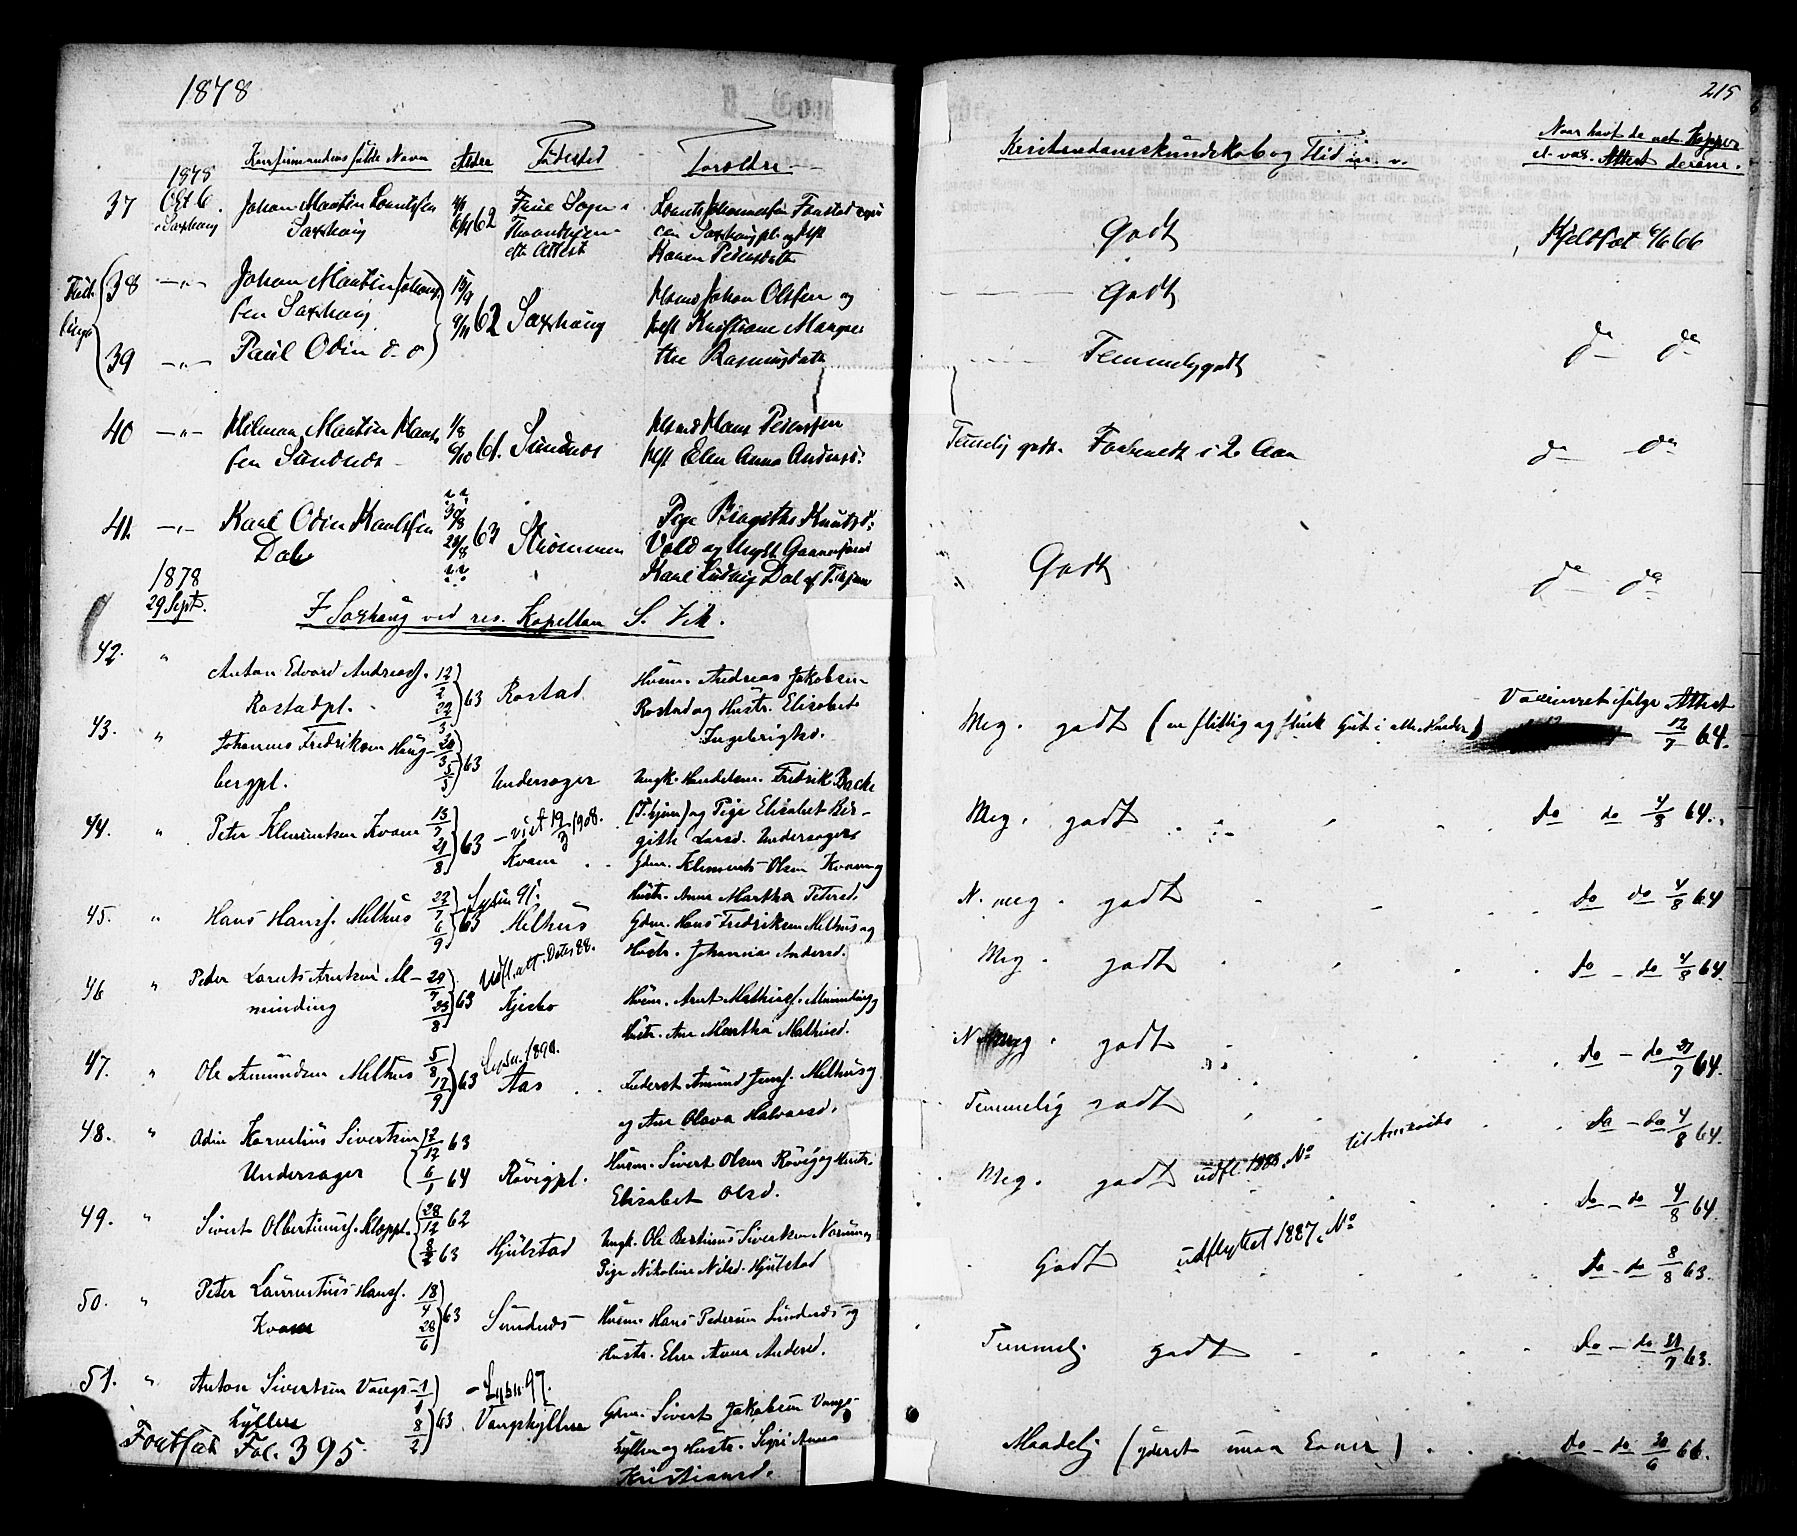 1878
215
Konfirmandens fulde Navn Alder Fødested Forældre
Kristendomskundskab og Flid
Naar havt de nat. Kopper
el. vac. Attest derom.
37 1878 Oct 6. Saxhaug Johan Martin Lorntssen
Saxhaug
62 Frue Sogn i
Throndhjem
Attest
Saxhaugpl. og Hst
Karen Pedersdatr
Godt
66
38 Johan Martin Johan-
sen Saxhaug
15/9 9/11 62 Saxhaug
Johan Olsen og
Kristiane Margre-
the Rasmusdatr
Godt
39 Paul Odin d. o
Temmelig godt
do do
40 Hilmar Martin Hans-
sen Sundnæs
61. Sundnæs
Hans Pedersen
Elen Anna Andersd:
Temmelig godt. Forberedt i 2 Aar
do do
41. Karl Odin Karlsen
Dal
30/8 63 Strømmen
Pige Birgithe Knutsd:
Vold og Ungk.
Karl Ludvig Dal af
Godt
do do
1878
29 Sept.
I Saxhaug ved res. Kapellan S. Vik.
42. " Anton Edvard Andreasf.
Rostadpl.
12/2 22/3 63 Rostad
Husm. Andreas Jakobsen
Rostad og Hustr. Elisabet
Ingebrigtsd.
Meg. godt (en flittig og flink Gut i alle
Vaccineret ifølge Attest
12/7 64.
43. " Johannes Fredriksen Haug-
bergpl.
63 Undersager
Ungk. Handelsm. Fredrik Backe
og Pige Elisabet Bir-
gitte Larsd. Undersager
Meg. godt
Do do 4/8 64.
44. " Peter Klementsen Kvam
13/7 21/8 63 - vist 19/3 1908.
Kvam
Gdm. Klement Olsen Kvam og
Hustr. Anne Martha Petersd.
N. meg. godt
Do do 4/8 64
45. " Hans Hansf. Melhus
22/7 6/9 63 Lysn 91.
Melhus
Gdm. Hans Fredriksen Melhus og
Hustr. Johanna Andersd.
Meg. godt
Do - do 4/8 64.
46 " Peder Lorents Arntsen Al-
minding
29/7 25/8 63 Udfl. att. 88.
Kjesbo
Husm. Arnt Mathiasf. Alminding og
Hustr. Ane Martha Mathiasd.
N. Meg. godt
Do - do 31/7 64.
47. " Ole Amundsen Melhus
5/8 12/9 63 Lysn. 1890.
Aas
Inderst Amund Jensf. Melhus og
og Ane Olava Halvorsd.
Temmelig godt
Do - do 4/8 64.
48. " Odin Kornelius Sivertsen
Undersager
2/12 63
6/1 64 Røvigpl.
Husm. Sivert Olsen Røvig og Hustr.
Elisabet Olsd.
Meg. godt udfl. 1888. No til Amerika
Do - do 4/8 64.
49. " Sivert Olbertinusf. Kloppl.
28/12 62
8/2 63 Hjulstad
Ungk. Ole Bertinus Sivertsen og
Pige Nikoline Nilsd. Hjulstad
Godt udflyttet 1887, No
Do - do 8/8 63.
50. " Peter Laurentius Hansf.
Kvam
18/4 28/6 63 Sundnæs
Husm. Hans Pedersen Sundnæs og
Hustr. Elen Anna Andersd.
Temmelig godt
Do - do 31/7 63.
51. " Anton Sivertsen Vangs-
hyllen
1/1 8/2 63 - Lysn 97.
Vangshyllen
Gdm. Sivert Jakobsen Vangs-
hyllen og Hustr. Sigri Anna
Kristiansd.
Maadelig (yderst Evner)
Do - do 30/6 66.
Fortsat Fol. 395.